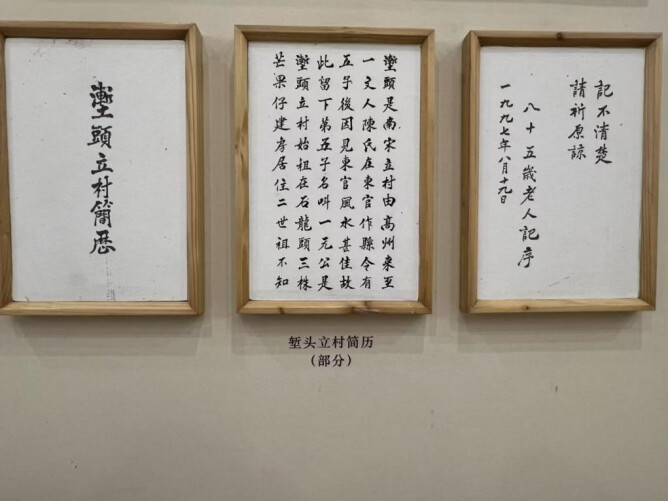 塹頭立村簡历
塹頭是南宋立村由高州來至
一文人陳氏在東官作縣令有
五子後因見東官風水甚佳故
此留下第五子名叫一元公是
塹頭立村始祖在石龍頭三株
芒果仔建房居住二世祖不知
記不清楚
請祈原諒
八十五歲老人記序
一九九七年八月十九日
堑头立村简历
（部分）